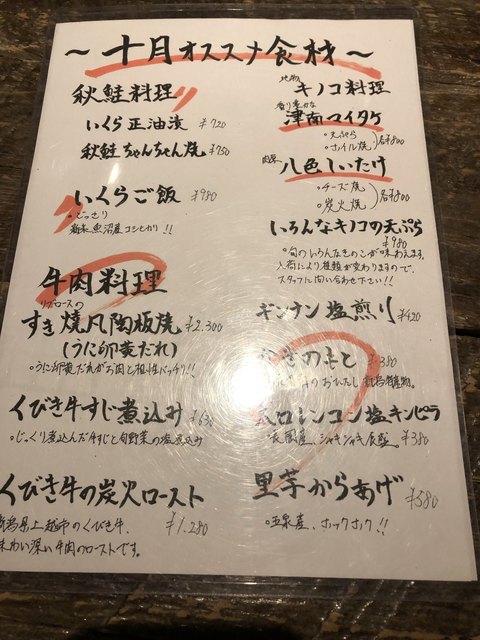 ～十月オススメ食材～
秋鮭料理
いくら正油漬 ¥720
秋鮭ちゃんちゃん焼 ¥750
いくらご飯 ¥980
。どっさり
新米魚沼産コシヒカリ!!
牛肉料理
リブロースの
すき焼風陶板焼 ¥2.300
(うに卵黄だれ)
。うに卵黄だれがお肉と相性バッチリ!!
くびき牛すじ煮込み ¥630
。じっくり煮込んだ牛すじと旬野菜の塩煮込み
くびき牛の炭火ロースト ¥1.280
新潟県上越市のくびき牛、
味わい深い牛肉のローストです。
地物
キノコ料理
香り豊かな
津南マイタケ
。天ぷら
。ホイル焼
各¥800
肉厚
八色しいたけ
。チーズ焼
。炭火焼
各¥800
いろんなキノコの天ぷら ¥980
。旬のいろんなきのこが味わえます。
入荷により種類が変わりますので、
スタッフに問い合わせ下さい!!
ギンナン塩煎り ¥420
きのもと ¥380
のおひたし
レンコン塩キンピラ ¥380
長岡産、シャキシャキ食感。
里芋からあげ ¥580
。五泉産、ホックホク!!